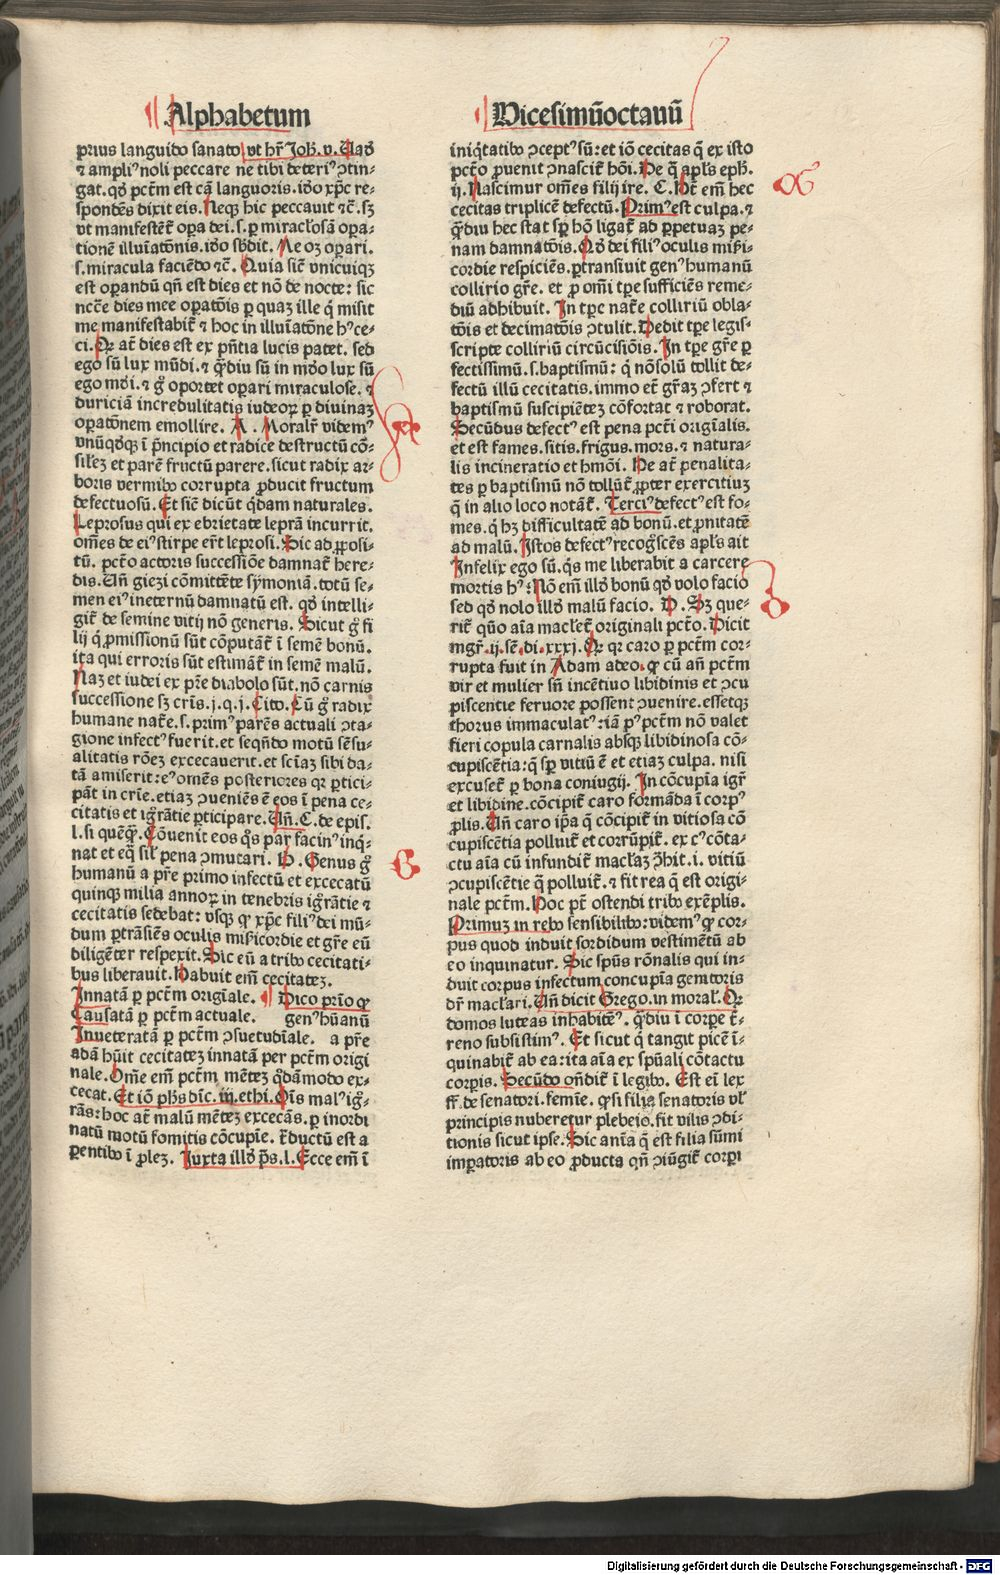 Alphabetum
Vicesimūoctauū
prius languido sanato vt hr̄ Joh. v. Uas̄
⁊ ampliꝰ noli peccare ne tibi deteriꝰ ↄtin-
gat. qd̄ pctm̄ est cā languoris. iō xp̄c re-
spondēs dixit eis. Neqꝫ hic peccauit ⁊c̄. sꝫ
vt manifestēt̄ oꝑa dei. s. ꝑ miracl'osā oꝑa-
tionē illuīatōnis. iō sb̄dit. Me oꝫ oꝑari.
s. miracula faciēdo ⁊c̄. Quia sic̄ vnicuiqꝫ
est oꝑandū qn̄ est dies et nō de nocte: sic
ncc̄e dies mee oꝑatōis ꝑ quaꝫ ille q̇ misit
me manifestabit̄ ⁊ hoc in illuīatōne hꝰ ce-
ci. Qꝛ at̄ dies est ex p̄ntia lucis patet. sed
ego sū lux mūdi. ⁊ qᷓdiu sū in mōo lux sū
ego mōi. ⁊ g̊ oportet oꝑari miraculose. ⁊
duriciā incredulitatis iudeoꝝ ꝑ diuinaꝫ
oꝑatōnem emollire. A. Moralr̄ videmꝰ
vnūqd̄qꝫ ī p̄ncipio et radice destructū cō-
sil'eꝫ et parē fructū parere. sicut radix ar-
boris vermibꝰ corrupta ꝓducit fructum
defectuosū. Et sic̄ dicūt qdam naturales.
Leprosus qui ex ebrietate leprā incurrit.
om̄es de eiꝰ stirpe er̄t leprosi. Sic ad ꝓposi-
tū. pctō actoris successiōe damnat̄ here-
dis. Un̄ giezi cōmittēte symoniā. totū se-
men eiꝰ ineternū damnatū est. qd̄ intelli-
git̄ de semine vitij nō generis. Sicut g̊ fi
lij q̇ ꝓmissionū sūt cōputāt̄ ī semē bonū.
ita qui erroris sūt estimāt̄ in semē malū.
Naꝫ et iudei ex pr̄e diabolo sūt. nō carnis
successione sꝫ cr̄is. j. q. j. Cito. Cū g̊ radix
humane nat̄e. s. primꝰ parēs actuali ↄta-
gione infectꝰ fuerit. et seqn̄do motū sēsu-
alitatis rōeꝫ excecauerit. et sciaꝫ sibi da-
tā amiserit: eꝰ om̄es posteriores qꝛ ꝑtici-
pāt in crīe. etiaꝫ ↄueniēs ē eos ī pena ce-
citatis et igr̄atie ꝑticipare. Un̄. C. de epis.
l. si quēqᷓ. Cōuenit eos qᷤ par facinꝰ inq̇-
nat et eq̄ sil' pena ↄmutari. B. Genus g̊
humanū a pr̄e primo infectū et excecatū
quinqꝫ milia annoꝝ in tenebris igr̄atie ⁊
cecitatis sedebat: vsqꝫ qͦ xp̄c filiꝰ dei mū-
dum ꝑtrāsiēs oculis mis̄icordie et gr̄e eū
diligēter respexit. Sic eū a tribꝰ cecitati-
bus liberauit. Habuit em̄ cecitateꝫ.
Innatā ꝑ pctm̄ origīale. ¶ Dico prīo qͦ
Causatā ꝑ pctm̄ actuale. genꝰ hūanū
Inueteratā ꝑ pctm̄ ↄsuetudīale. a pr̄e
adā hūit cecitateꝫ innatā per pctm̄ origi
nale. Om̄e em̄ pctm̄ mēteꝫ qᷓdāmodo ex-
cecat. Et iō ph̄s dic̄. iij. ethi. Oīs malꝰ igr̄-
rās: hoc at̄ malū mēteꝫ excecās. ꝑ inordi
natū motū fomitis cōcupīe. t̄ductū est a
ꝑentibꝰ ī ꝓleꝫ. Iuxta illd̄ ps̄. l. Ecce em̄ ī
iniq̇tatibꝰ ↄceptꝰ sū: et iō cecitas q̄ ex isto
pctō ꝓuenit ↄnascit̄ hōi. De q̄ apl's eph̄.
ij. Nascimur om̄es filij ire. C. Ht̄ em̄ hec
cecitas triplicē defectū. Primꝰ est culpa. ⁊
qᷓdiu hec stat sp̄ hō ligat̄ ad ꝑpetuaꝫ pe-
nam damnatōis. Qd̄ dei filiꝰ oculis mis̄i-
cordie respiciēs. ꝑtransiuit genꝰ humanū
collirio gr̄e. et ꝓ om̄i tp̄e sufficiēs reme-
diū adhibuit. In tp̄e nat̄e colliriū obla-
tōis et decimatōis ↄtulit. Dedit tp̄e legis-
scripte colliriū circūcisiōis. In tp̄e gr̄e ꝑ
fectissimū. s. baptismū: q̇ nōsolū tollit de-
fectū illū cecitatis. immo et gr̄aꝫ ↄfert ⁊
baptismū suscipiēteꝫ cōfortat ⁊ roborat.
Secūdus defectꝰ est pena pcti origīalis.
et est fames. sitis. frigus. mors. ⁊ natura-
lis incineratio et hmōi. De at̄ penalita-
tes ꝑ baptismū nō tollūt̄ ꝓpter exercitiuꝫ
q̄ in alio loco notāt̄. Terciꝰ defectꝰ est fo-
mes. q̇ hꝫ difficultatē ad bonū. et ꝓnitatē
ad malū. Istos defectꝰ recogᷤcēs apl's ait
Infelix ego sū. qᷤ me liberabit a carcere
mortis hꝰ: Nō em̄ illd̄ bonū qd̄ volo facio
sed qd̄ nolo illd̄ malū facio. D. Sꝫ que-
rit̄ qūo aīa macl'et̄ originali pctō. Dicit
mgr̄. ij. sē. di. xxxj. Qꝛ qꝛ caro ꝑ pctm̄ cor-
rupta fuit in Adam adeo. qͦ cū an̄ pctm̄
vir et mulier sn̄ incētiuo libidinis et ↄcu
piscentie feruore possent ↄuenire. essetqꝫ
thorus immaculatꝰ: iā pꝰ pctm̄ nō valet
fieri copula carnalis absqꝫ libidinosa cō-
cupiscētia: q̄ sp̄ vitiū ē et etiaꝫ culpa. nisi
excuset̄ ꝑ bona coniugij. In cōcupīa igr̄
et libidine. cōcipit̄ caro formāda ī corpꝰ
ꝓlis. Un̄ caro ip̄a q̄ cōcipit̄ in vitiosa cō
cupiscētia polluit̄ et corrūpit̄. ex cꝰ cōta-
ctu aīa cū infundit̄ macl'aꝫ ↄh̄it. i. vitiū
ↄcupiscētie q̄ polluit̄. ⁊ fit rea q̄ est origi-
nale pctm̄. Hoc pt̄ ostendi tribꝰ exēplis.
Primuꝫ in rebꝰ sensibilibꝰ: videmꝰ qͦ cor-
pus quod induit sordidum vestimētū ab
eo inquinatur. Sic spūs rōnalis qui in-
duit corpus infectum concupīa gemtoris
dr̄ macl'ari. Un̄ dicit Grego. in moral'. Qꝛ
domos luteas inhabitēꝰ. qᷓdiu ī corꝑe t̄-
reno subsistimꝰ. Et sicut q̇ tangit picē ī-
quinabit̄ ab ea: ita aīa ex spūali cōtactu
corꝑis. Secūdo on̄dit̄ ī legibꝰ. Est ei lex
ff. de senatori. femīe. qͦ si filia senatoris vl'
principis nuberetur plebeio. fit vilis ↄdi-
tionis sicut ipse. Sic anīa q̄ est filia sūmi
imꝑatoris ab eo ꝓducta qn̄ ↄiūgit̄ corꝑi
Digitalisierung gefördert durch die Deutsche Forschungsgemeinschaft - DFG